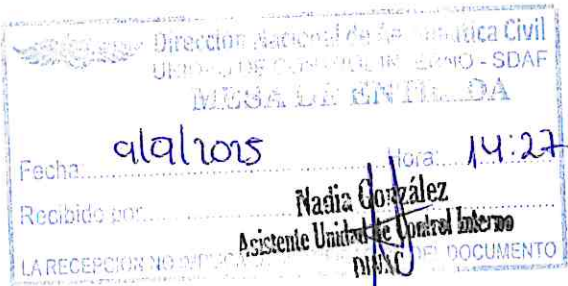 Dirección Nacional de Aeronáutica Civil
UNIDAD DE CONTROL INTERNO - SDAF
MESA DE ENTRADA
Fecha: 9/9/2025 Hora: 14:27
Recibido por:
Nadia González
Asistente Unidad de Control Interno
DINAC
LA RECEPCION NO DEL DOCUMENTO